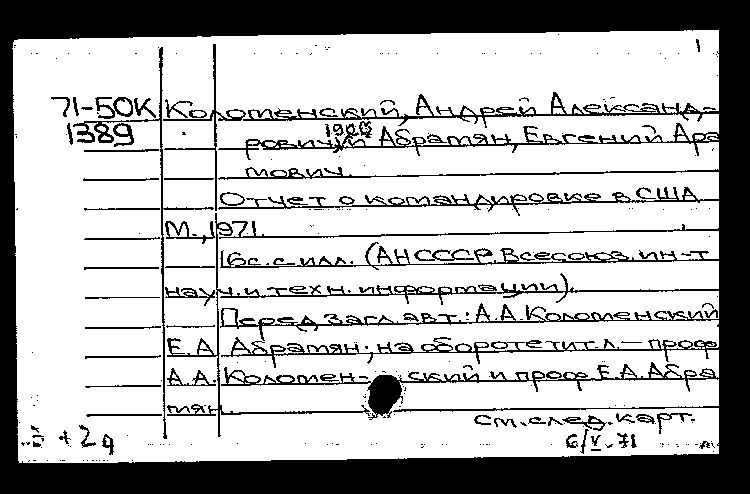 1
71-50К Коломенский, Андрей Александ-
1389 рович, и Абрамян, Евгений Ара
мович.
Отчет о командировке в США
М., 1971.
16с. с илл. (АН СССР. Всесоюз. ин-т
науч. и техн. информации).
Перед загл. авт.: А.А. Коломенский,
Е.А. Абрамян; на обороте тит. л. — проф.
А.А. Коломенский и проф. Е.А. Абра
мян.
см. след. карт.
+ 2 6/V-71